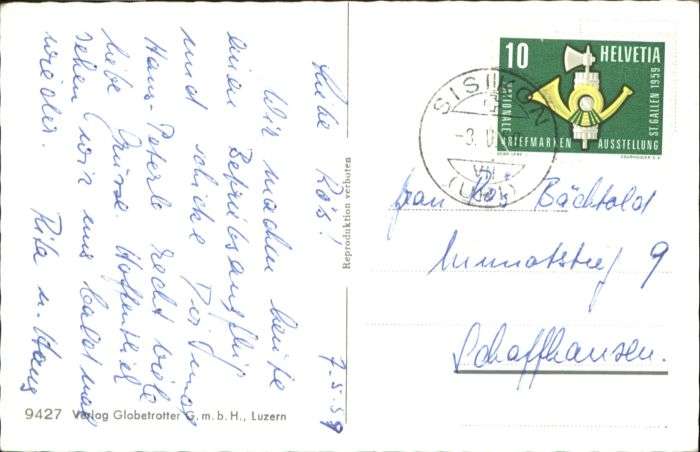 7.5.59
Liebe Rös!
Wir machen heute
einen Betriebsausflug
und schicke Dir und
Hans-Peterle recht viele
liebe Grüsse. Hoffentlich
sehen wir uns bald mal
wieder. Rita u. Hans
Reproduktion verboten
9427 Verlag Globetrotter G.m.b.H., Luzern
10 HELVETIA
NATIONALE BRIEFMARKEN AUSSTELLUNG ST. GALLEN 1959
SISIKON
(URI)
Frau Rös Bächtold
9
Schaffhausen.